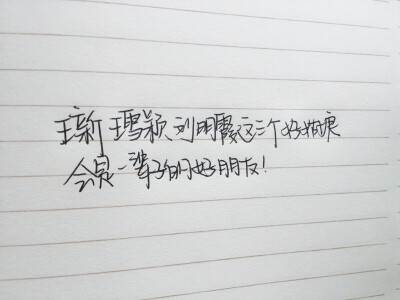 王新 王雪颖 刘明霞这三个好姑娘
会是一辈子的好朋友！